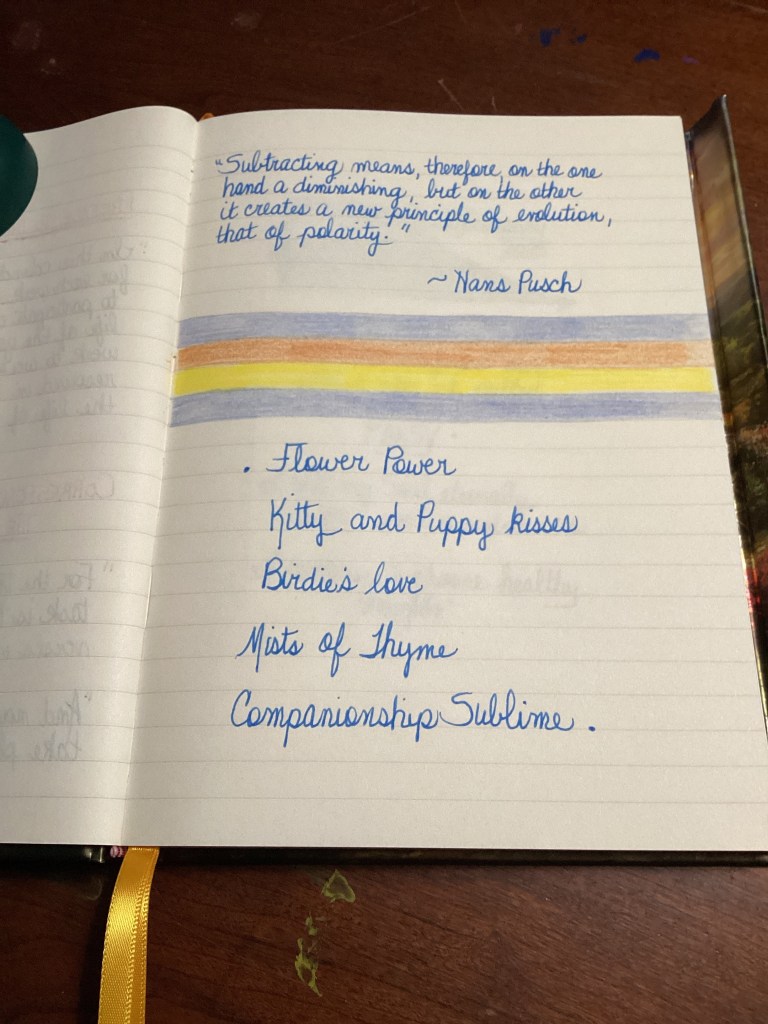 "Subtracting means, therefore, on the one
hand a diminishing, but on the other
it creates a new principle of evolution,
that of polarity."
~ Hans Pusch
. Flower Power
Kitty and Puppy kisses
Birdie's love
Mists of Thyme
Companionship Sublime .